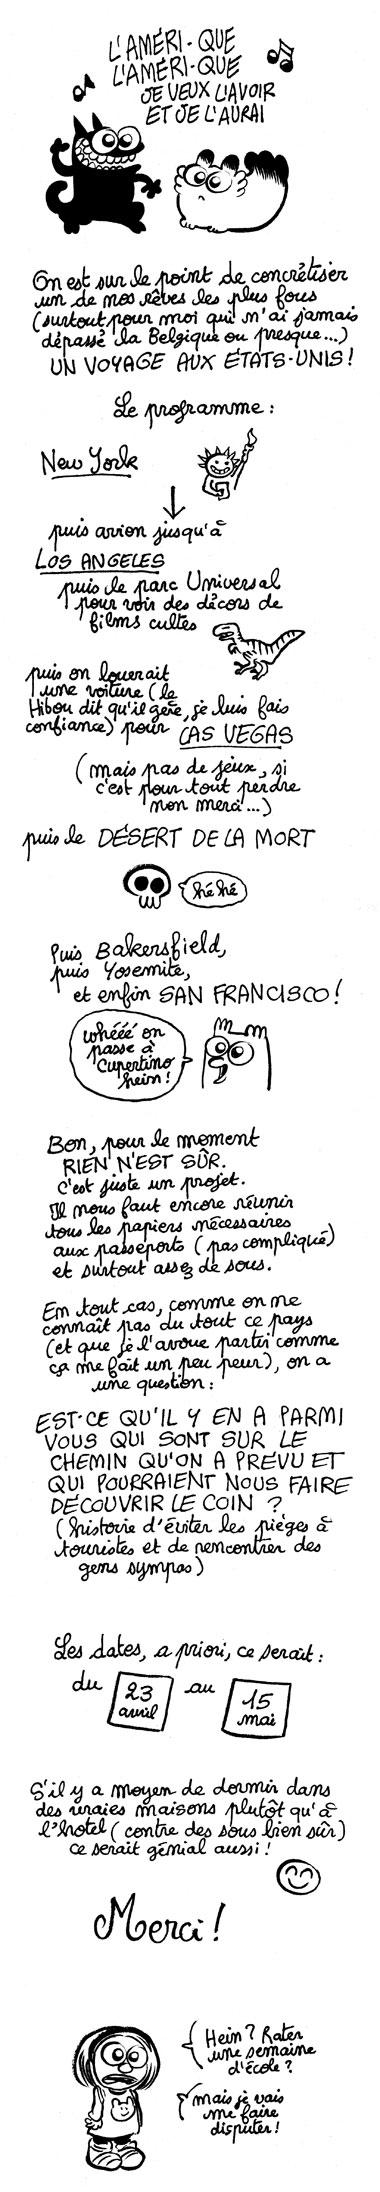 L'AMÉRI-QUE
L'AMÉRI-QUE
JE VEUX L'AVOIR
ET JE L'AURAI
On est sur le point de concrétiser
un de nos rêves les plus fous
(surtout pour moi qui n'ai jamais
dépassé la Belgique ou presque...)
UN VOYAGE AUX ÉTATS-UNIS!
Le programme :
New York
puis avion jusqu'à
LOS ANGELES
puis le parc Universal
pour voir des décors de
films cultes
puis on louerait
une voiture (le
Hibou dit qu'il gère, je lui fais
confiance) pour LAS VEGAS
(mais pas de jeux, si
c'est pour tout perdre
non merci...)
puis le DÉSERT DE LA MORT
hé hé
Puis Bakersfield,
puis Yosemite,
et enfin SAN FRANCISCO!
whééé on
passe à
Cupertino
hein!
Bon, pour le moment
RIEN N'EST SÛR.
C'est juste un projet.
Il nous faut encore réunir
tous les papiers nécessaires
aux passeports (pas compliqué)
et surtout assez de sous.
En tout cas, comme on ne
connaît pas du tout ce pays
(et que je l'avoue partir comme
ça me fait un peu peur), on a
une question :
EST-CE QU'IL Y EN A PARMI
VOUS QUI SONT SUR LE
CHEMIN QU'ON A PRÉVU ET
QUI POURRAIENT NOUS FAIRE
DÉCOUVRIR LE COIN ?
(histoire d'éviter les pièges à
touristes et de rencontrer des
gens sympas)
Les dates, a priori, ce serait :
du 23 avril au 15 mai
S'il y a moyen de dormir dans
des vraies maisons plutôt qu'à
l'hotel (contre des sous bien sûr)
ce serait génial aussi!
Merci!
Hein? Rater
une semaine
d'école?
mais je vais
me faire
disputer!